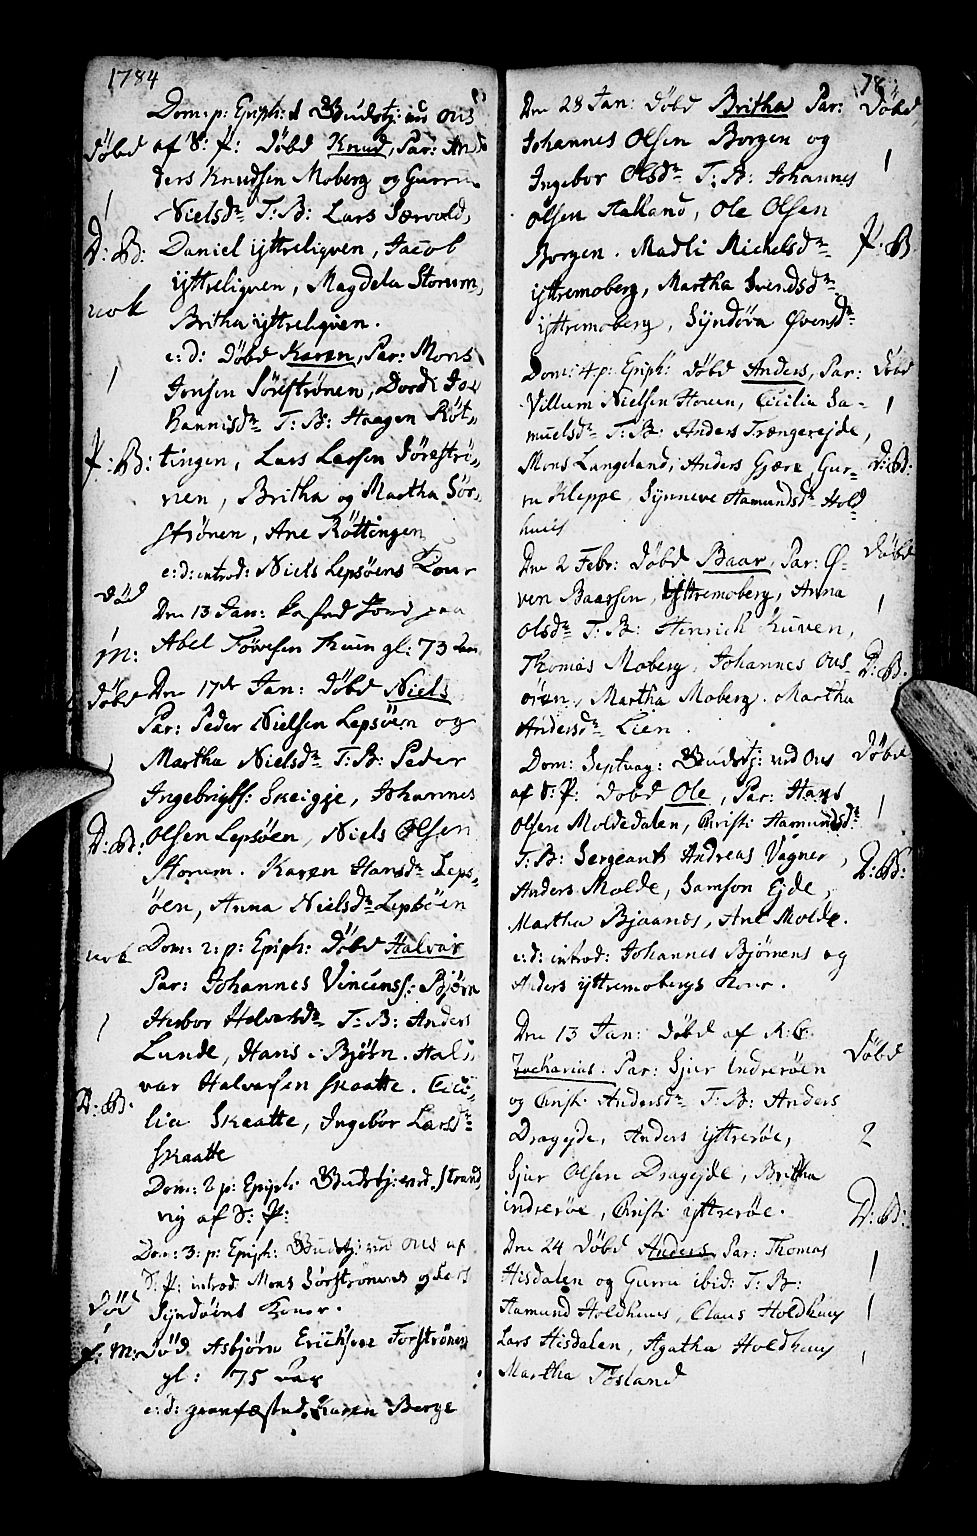 1784
Dom: p: Epiph: 1 Gudstj: ved Ous
Döbd af S: P: Döbd Knud, Par: An-
ders Knudsen Moberg og Gurru
1
Nielsdr T: B: Lars Særvold,
D: B: Daniel ijttreligven, Jacob
ijttreligven, Magdela Storum,
nok
Britha ijttreligven.
e: d: Döbd Karen, Par: Mons
1
Jonsen Söreströnen, Dordi Jo-
hannisdr T: B: Haagen Röt-
P: B: tingen, Lars Larsen Söreströ-
nen, Britha og Martha Sör-
strönen, Ane Röttingen
e: d: introd: Niels Lepsöens Konr
död
Den 13 Jan: kasted Jord paa
m: Abel Töresen Thuen gl: 73 aar
Döbd Den 17de Jan: Döbd Niels
Par: Peder Nielsen Lepsöen og
Martha Nielsdr T: B: Peder
1
Ingebrigts: Skeigje, Johannes
D: B: Olsen Lepsöen, Niels Olsen
Storum. Karen Hansdr Leps-
öen, Anna Nielsdr Lepsöen
nok Dom: 2: p: Epiph: Döbd Halvar
Par: Johannes Vincents: Björn
1
Herbor Helversdr T: B: Anders
Lunde, Hans i Björn. Hal-
var Halvarsen Skaatte. Ceci-
D: B.
lia Skaatte, Ingebor Larsdr
Skaatte
Dom: 2 p: Epiph: Gudstj: ved Strand
vig af S: P:
Dom: 3: p: Epiph: Gudstj: ved Ous af
S: P: introd Mons Sörströnens og Lars
Död
Syndöens Koner.
f: m: Död Asbjörn Erichsen Forströnen
gl: 75 aar
e: d: Karen Berge
78
Den 28 Jan: Döbd Britha Par: Döbd
Johannes Olsen Borgen og
1
Ingebor Olsdr T: B: Johannes
Olsen Aakland, Ole Olsen
Borgen. Madli Michelsdr P: B
ijttremoberg, Martha Svendsdr
ijttremoberg, Syndöva Övensdr
Dom: 4 p: Epiph: Döbd Anders, Par: Döbd
Villum Nielsen Houen, Cicilia Sa-
1
muelsdr T: B: Anders Trængerejde,
Mons Langeland, Anders Gjære, Gur- D: B:
ru Kleppe, Synneve Aamundsdr Hold
huus
Den 2 Febr: Döbd Baar, Par: Ö- Döbd
ven Baarsen, ijttremoberg, Anna
1
Olsdr T: B: Henrich Kuven,
Thomas Moberg, Johannes Ous D: B.
ören, Martha Moberg. Martha
Andersdr Lien.
Dom: Septuag: Gudstj: ved Ous Döbd
af S: P: Döbd Ole, Par: Hans
Olsen Moldedalen, Christi Aamundsdr 1
T: B: Sergeant Andreas Vagner,
D: B:
Anders Molde, Samson Ejde,
Martha Bjaanæs, Ane Molde.
e: d: introd: Johannes Björnens og
Anders ijttremobergs Koner.
Den 13 Jan: Döbd af R: C:
Döbd
Zacharias. Par: Sjur Indreröen
og Christi Andersdr T: B: Anders
Dragejde, Anders ijttreröe,
2
Sjur Olsen Dragejde, Britha
indreröe, Christi ijttreröe.
D: B:
Den 24 Döbd Anders, Par: Thomas
1
Hisdalen og Gurru ibid: T: B:
Aamund Holdhuus, Claus Holdhuus
1
Lars Hisdalen, Agatha Holdhuus
Martha Tösland